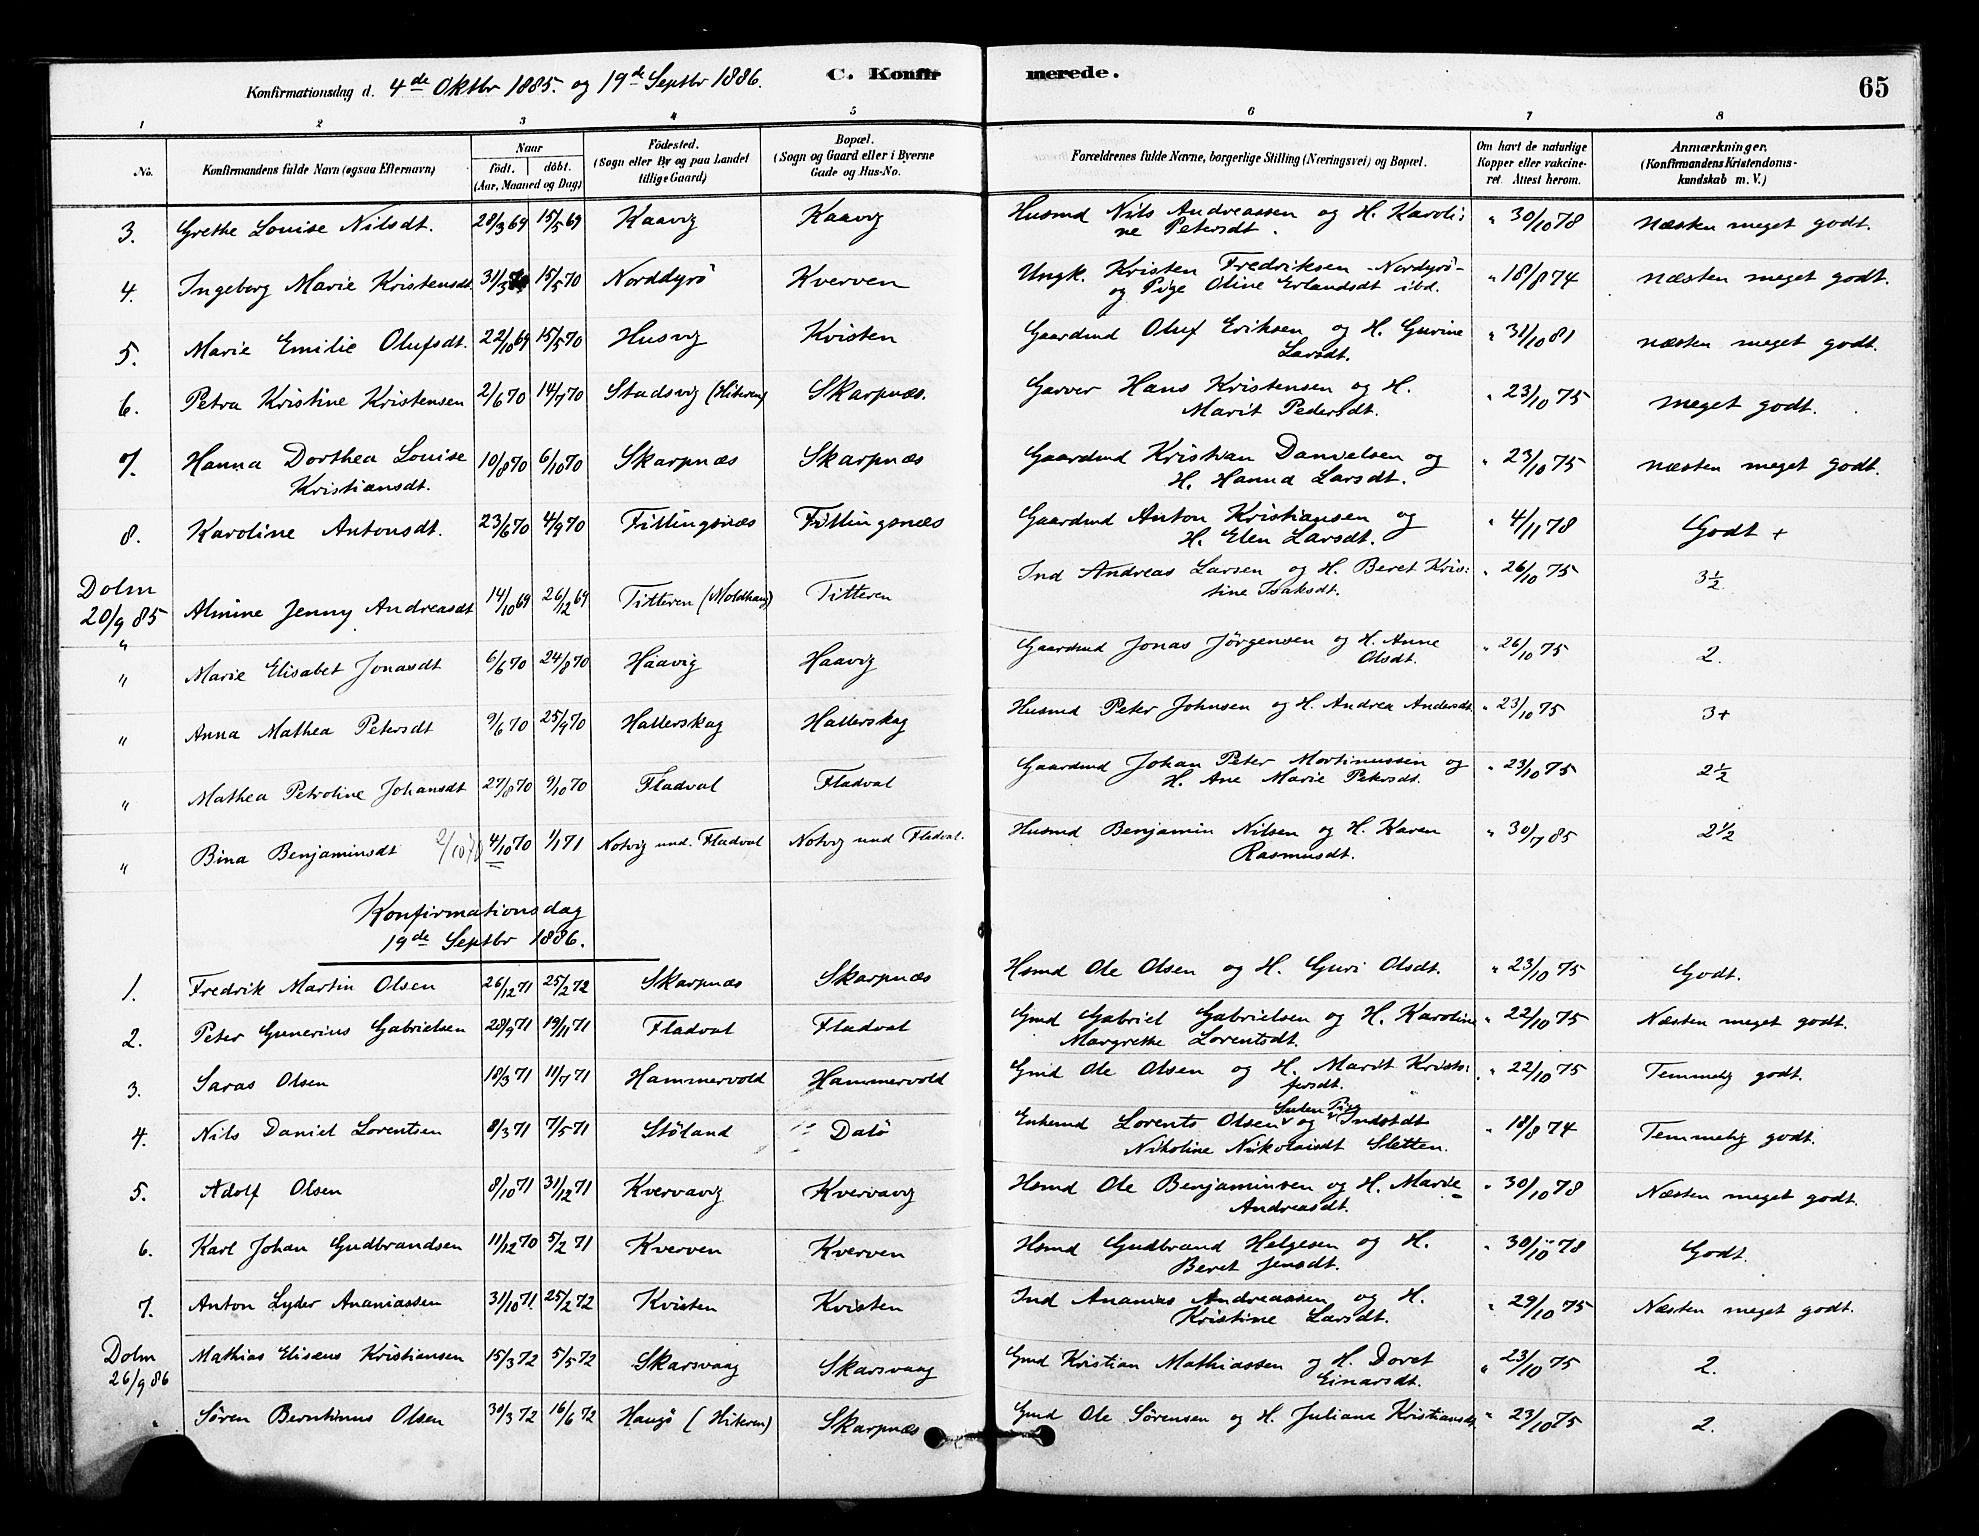 Konfirmationsdag d. 4de Oktbr 1885. og 19de Septbr 1886. C. Konfirmerede. 65
1 2 3 4 5 6 7 8
No. Konfirmandens fulde Navn (ogsaa Efternavn) Naar født. døbt. (Aar, Maaned og Dag) Födested. (Sogn eller By og paa Landet tillige Gaard) Bopæl. (Sogn og Gaard eller i Byerne Gade og Hus-No. Forældrenes fulde Navne, borgerlige Stilling (Næringsvei) og Bopæl. Om havt de naturlige Kopper eller vakcineret. Attest herom. Anmærkninger. (Konfirmandens Kristendomskundskab m. V.)
3. Grethe Louise Nilsdt. 28/3 69 15/5 69 Kaavig Kaavig Husmd Nils Andreassen og H. Karoline Petersdt. " 30/10 78 Næsten meget godt.
4. Ingeborg Marie Kristensdt 31/3 70 15/5 70 Norddyrö Kverven Ungk. Kristen Fredriksen Nordyrö og Pige Oline Erlandsdt ibd. " 18/8 74 næsten meget godt.
5. Marie Emilie Olufsdt. 22/10 69 15/5 70 Husvig Kvisten Gaardmd Oluf Eriksen og H. Gurine Larsdt. " 31/10 81 næsten meget godt.
6. Petra Kristine Kristensen 2/6 70 14/7 70 Stadsvig (Hiteren) Skarpnæs. Garver Hans Kristensen og H. Marit Pedersdt. " 23/10 75 meget godt.
7. Hanna Dorthea Louise Kristiansdt. 10/8 70 6/10 70 Skarpnæs Skarpnæs Gaardmd Kristian Danielsen og H. Hanna Larsdt. " 23/10 75 næsten meget godt.
8. Karoline Antonsdt. 23/6 70 4/9 70 Fillingsnæs Fillingsnæs Gaardmd Anton Kristiansen og H. Elen Larsdt. " 4/11 78 Godt +
Dolm 20/9 85 Almine Jenny Andreasdt 14/10 69 26/12 69 Titteren (Moldhaug) Titteren Ind Andreas Larsen og H. Beret Kristine Isaksdt. " 26/10 75 3½
" Marie Elisabet Jonasdt 6/6 70 24/8 70 Haavig Haavig Gaardmd Jonas Jørgensen og H. Anne Olsdt. " 26/10 75 2.
" Anna Mathea Petersdt 9/6 70 25/9 70 Hallerskag Hallerskag Husmd Peter Johnsen og H. Andrea Andersdt. " 23/10 75 3+
" Mathea Petroline Johansdt 27/8 70 9/10 70 Fladval Fladval Gaardmd Johan Peter Martinussen og H. Ane Marie Petersdt. " 23/10 75 2½
" Bina Benjaminsdt 2/10 70 4/10 70 1/1 71 Notvig und. Fladval Notvig und Fladval. Husmd Benjamin Nilsen og H. Karen Rasmusdt. " 30/7 85 2½
Konfirmationsdag
19de Septbr 1886.
1. Fredrik Martin Olsen 26/12 71 25/2 72 Skarpnæs Skarpnæs Hsmd Ole Olsen og H. Guri Olsdt. " 23/10 75 Godt.
2. Peter Gunerius Gabrielsen 28/9 71 19/11 71 Fladval Fladval Gmd Gabriel Gabrielsen og H. Karoline Margrethe Lorentsdt. " 22/10 75 Næsten meget godt.
3. Saras Olsen 18/3 71 11/7 71 Hammervold Hammervold Gmd Ole Olsen og H. Marit Kristofersdt. " 22/10 75 Temmelig godt.
4. Nils Daniel Lorentsen 8/3 71 7/5 71 Stöland Dalö Enkemd Lorents Olsen og Pige Indstdt Nikoline Nikolaisdt Sletten. " 18/8 74 Temmelig godt.
5. Adolf Olsen 8/10 71 31/12 71 Kvervavig Kvervavig Hsmd Ole Benjaminsen og H. Marie Andreasdt. " 30/10 78 Næsten meget godt.
6. Karl Johan Gudbrandsen 11/12 70 5/2 71 Kverven Kverven Hsmd Gudbrand Helgesen og H. Beret Jensdt. " 30/10 78 Godt.
7. Anton Lyder Ananiassen 31/10 71 25/2 72 Kvisten Kvisten Ind Ananias Andreassen og H. Kristine Larsdt. " 29/10 75 Næsten meget godt.
Dolm 26/9 86 Mathias Eliseus Kristiansen 15/3 72 5/5 72 Skarsvaag Skarsvaag Gmd Kristian Mathiassen og H. Doret Einarsdt. " 23/10 75 2.
" Søren Berntinus Olsen 30/3 72 16/6 72 Haugö (Hiteren) Skarpnæs Gmd Ole Sørensen og H. Juliana Kristiansdt. " 23/10 75 2.